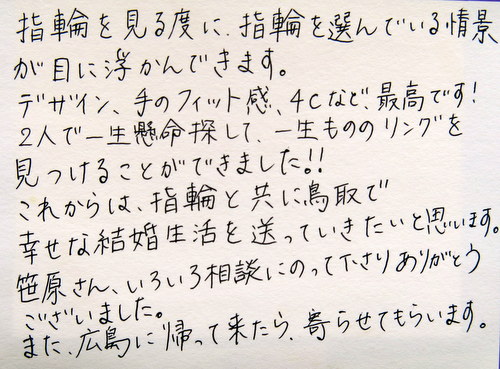 指輪を見る度に、指輪を選んでいる情景
が目に浮かんできます。
デザイン、手のフィット感、4Cなど、最高です!
2人で一生懸命探して、一生もののリングを
見つけることができました!!
これからは、指輪と共に鳥取で
幸せな結婚生活を送っていきたいと思います。
笹原さん、いろいろ相談にのって下さりありがとう
ございました。
また、広島に帰って来たら、寄らせてもらいます。